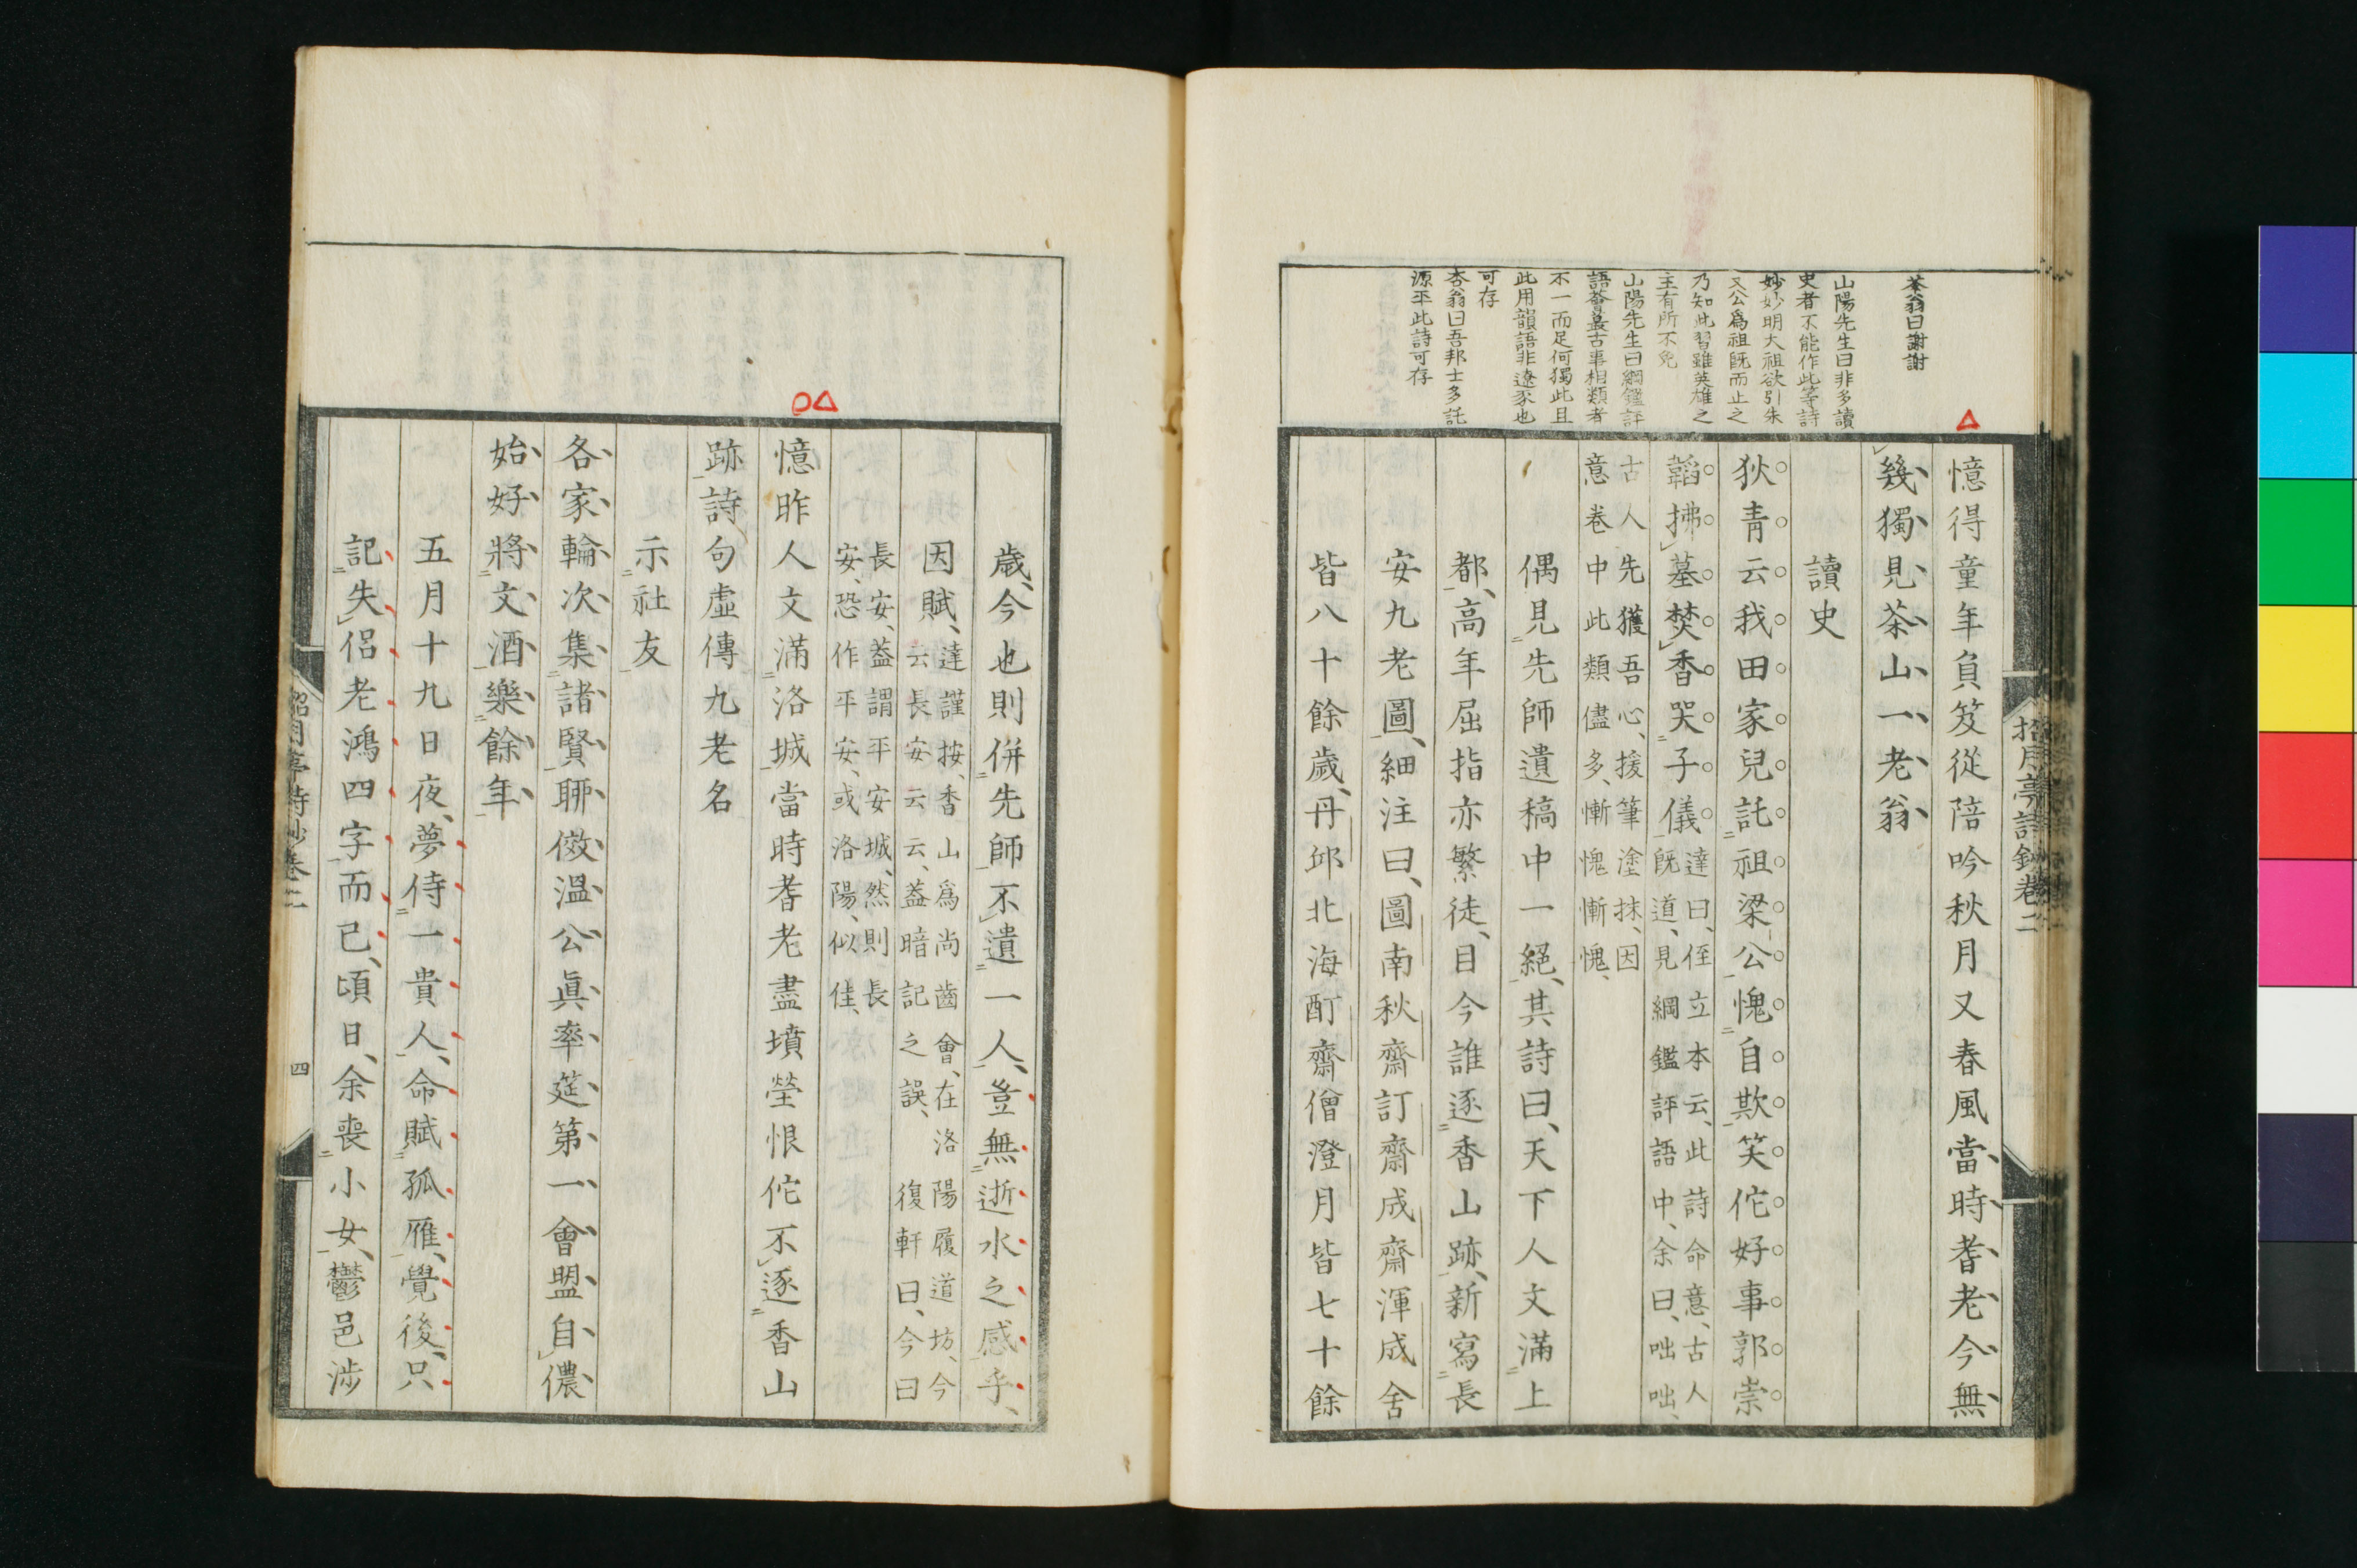 茶翁曰謝謝
山陽先生曰非多讀
史者不能作此等詩
妙妙明大祖欲引朱
文公爲祖既而止之
乃知此習雖英雄之
主有所不免
山陽先生曰綱鑑評
語薈蕞古事相類者
不一而足何獨此且
此用韻語非遼豕也
可存
杏翁曰吾邦士多託
源平此詩可存
憶得童年負笈從陪吟秋月又春風當時耆老今無
幾獨見茶山一老翁
讀史
狄青云我田家兒託祖梁公愧自欺笑佗好事郭崇
韜拂墓焚香哭子儀達曰侄立本云此詩命意古人
既道見綱鑑評語中余曰咄咄
古人先獲吾心援筆塗抹因
意卷中此類儘多慚愧慚愧
偶見先師遺稿中一絕其詩曰天下人文滿上
都高年屈指亦繁徒目今誰逐香山跡新寫長
安九老圖細注曰圖南秋齋訂齋成齋渾成舍
皆八十餘歲丹邱北海酊齋僧澄月皆七十餘
招月亭詩鈔卷二
歲今也則併先師不遺一人豈無逝水之感乎
因賦達謹按香山爲尚齒會在洛陽履道坊今
云長安云云蓋暗記之誤 復軒曰今曰
長安蓋謂平安城然則長
安恐作平安或洛陽似佳
憶昨人文滿洛城當時耆老盡墳塋恨佗不逐香山
跡詩句虛傳九老名
示社友
各家輪次集諸賢聊傚溫公眞率筵第一會盟自儂
始好將文酒樂餘年
五月十九日夜夢侍一貴人命賦孤雁覺後只
記失侶老鴻四字而已頃日余喪小女鬱邑涉
招月亭詩鈔卷二
四